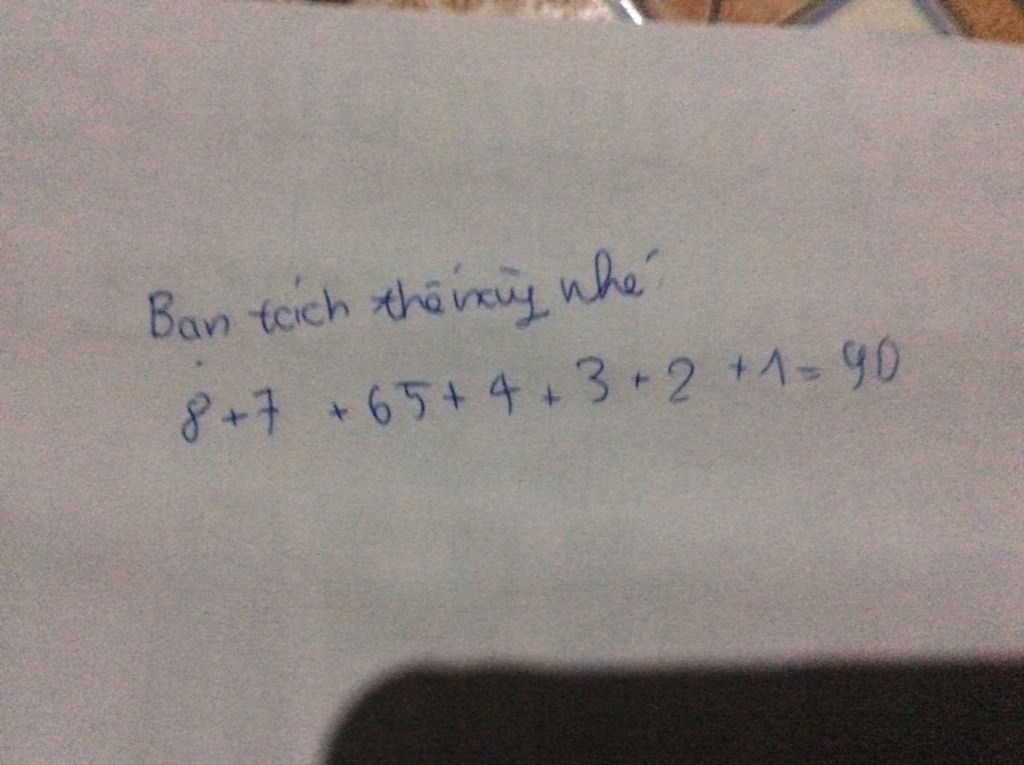 Bạn tách thế này nhé
8+7 +65+4+3+2+1=90